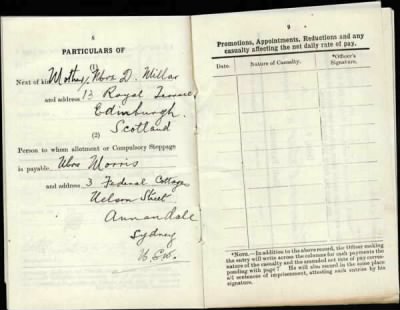 8
PARTICULARS OF
(1)
Next of kin Mother, Mrs D. Millar
and address 13 Royal Terrace
Edinburgh.
Scotland
(2)
Person to whom allotment or Compulsory Stoppage
is payable Mrs Morris
and address 3 Federal Cottages
Nelson Street
Annandale
Sydney
N.S.W.
9
Promotions, Appointments, Reductions and any
casualty affecting the net daily rate of pay.
Date.
Nature of Casualty.
*Officer's
Signature.
*NOTE.—In addition to the above record, the Officer making
the entry will write across the columns for cash payments the
nature of the casualty and the amended net rate of pay corres-
ponding with page 7. He will also record in the same place
all sentences of imprisonment, attesting such entries by his
signature.